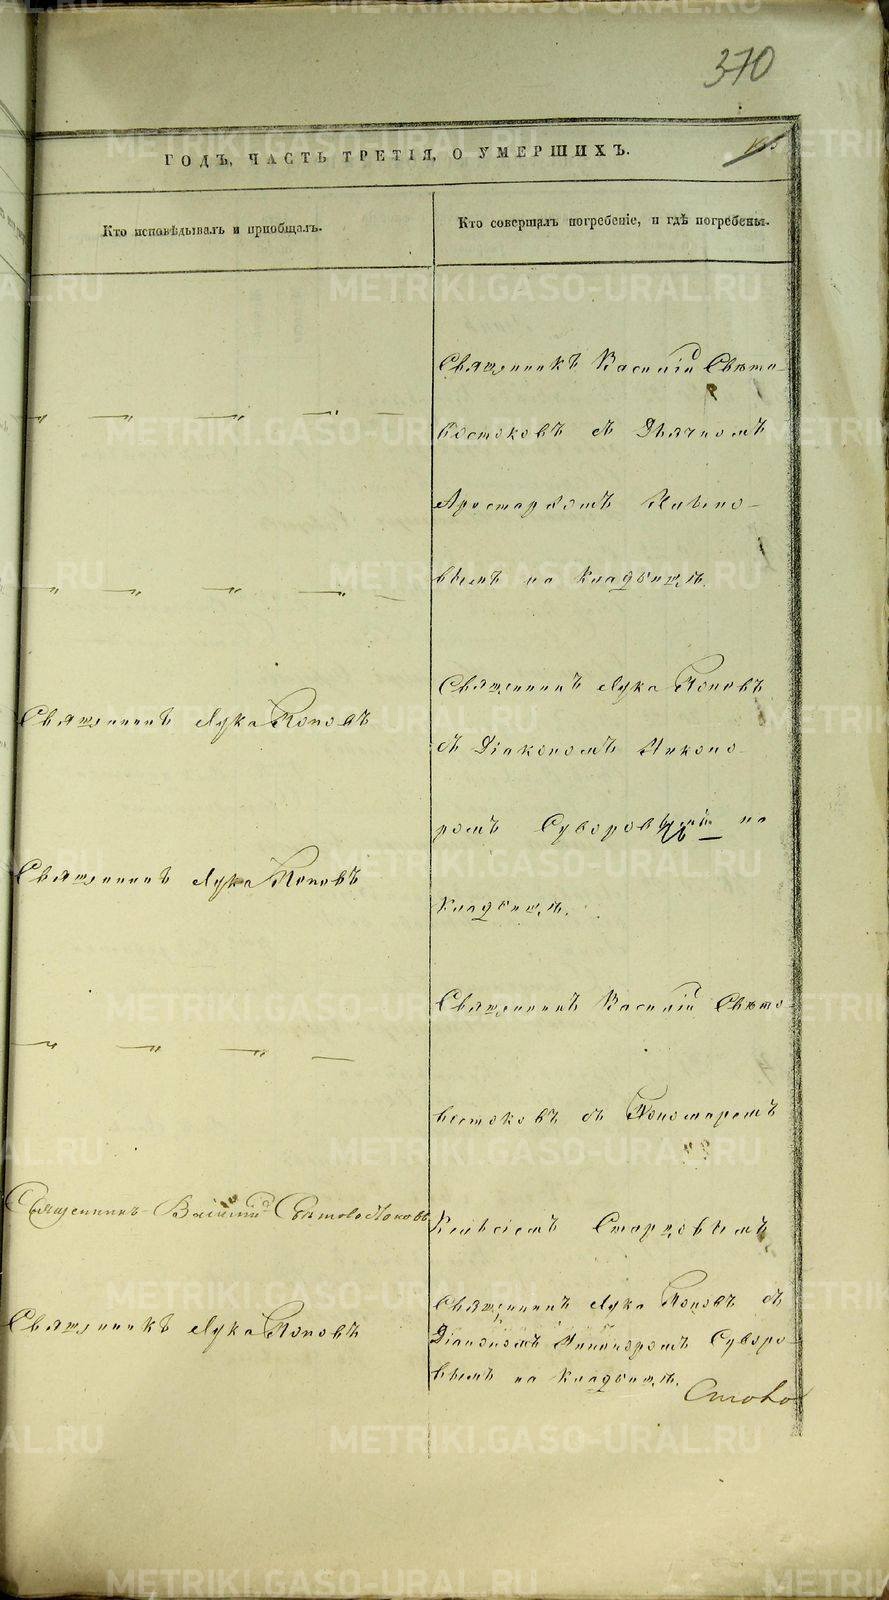 370
ГОДЪ, ЧАСТЬ ТРЕТІЯ, О УМЕРШИХЪ.
Кто исповѣдывалъ и пріобщалъ.
Кто совершалъ погребеніе, и гдѣ погребены.
Священникъ Василій Свѣто-
востоковъ съ Дьячкомъ
Аристархомъ
вымъ на кладбищѣ.
Священникъ Лука Поповъ
Священникъ Лука Поповъ
съ Діакономъ Никано-
ромъ Суворовымъ на
Священникъ Лука Поповъ
кладбищѣ.
Священникъ Василій Свѣто-
востоковъ съ Пономаремъ
Священникъ Василій Свѣтовостоковъ
Старцовымъ
Священникъ Лука Поповъ съ
Священникъ Лука Поповъ
Діакономъ Никаноромъ Суворо-
вымъ на кладбищѣ.
METRIKI.GASO-URAL.RU